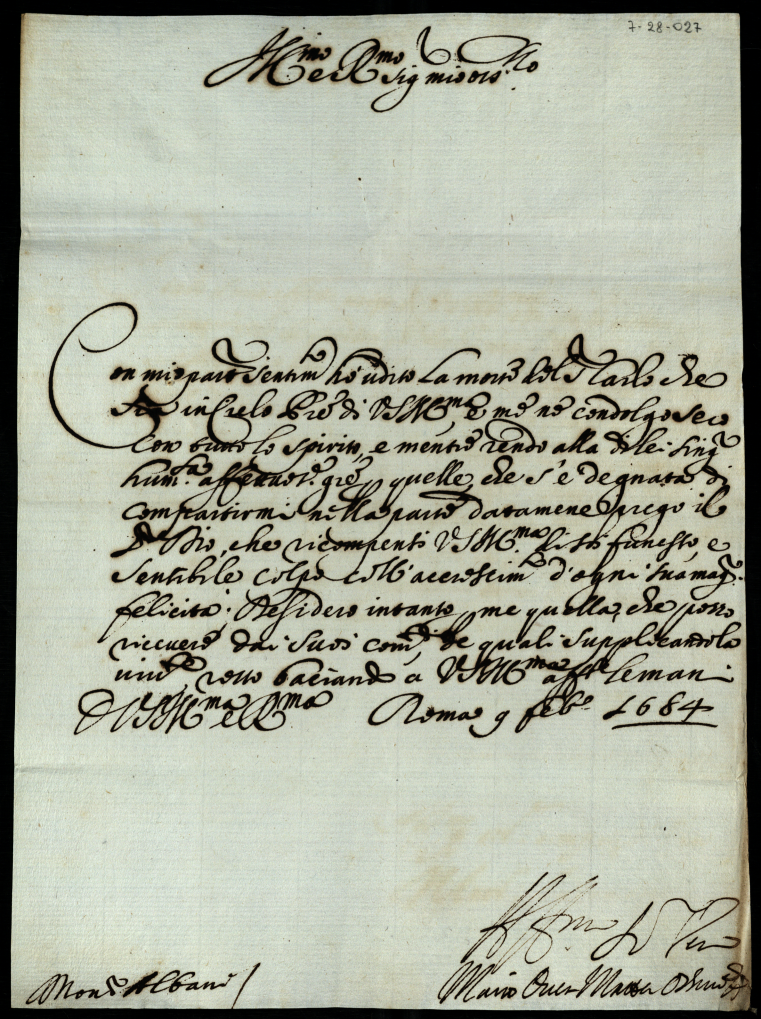 7-28-027
Ill.mo e R.mo Sig mio oss.mo
Con mio part. sentim.to hò udito la morte del S. Carlo che
sia in Cielo Pre di VS Ill.ma e me ne condolgo seco
con tutto lo spirito, e mentre rendo alla di lei sing.
hum.tà gre, quelle, che s'è degnata di
compartirmi nella parte datamene prego il
S. Dio, che ricompensi VS Ill.ma di sì funesto, e
sensibile colpo coll'accrescim.to d'ogni sua mag.
felicità. Desidero intanto quella, che posso
ricevere dai suoi com.di de quali supplicandola
resto baciando a VS Ill.ma aff.te le mani
D VS Ill.ma e R.ma Roma 9 feb.o 1684
Aff.mo
Mons. Albani